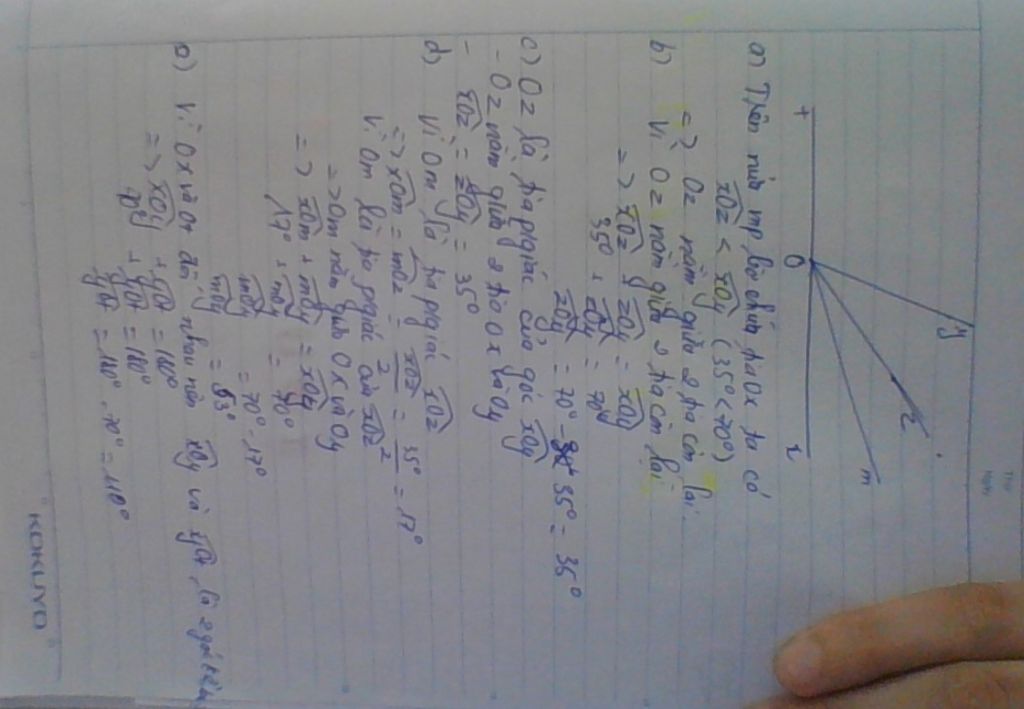 Thứ
Ngày
y
z
m
t
O
x
a) Trên nửa mp bờ chứa tia Ox ta có
xOz < xOy (35° < 70°)
=> Oz nằm giữa 2 tia còn lại.
b) Vì Oz nằm giữa 2 tia còn lại
=> xOz + zOy = xOy
35° + zOy = 70°
zOy = 70° - 35° = 35°
c) Oz là tia pgiác của góc xOy
- Oz nằm giữa 2 tia Ox và Oy
- xOz = zOy = 35°
d) Vì Om là tia pgiác xOz
=> xOm = mOz = xOz/2 = 35°/2 = 17°
Vì Om là tia pgiác của xOz
=> Om nằm giữa Ox và Oy
=> xOm + mOy = xOy
17° + mOy = 70°
mOy = 70° - 17°
mOy = 53°
e) Vì Ox và Ot đối nhau nên xOy và yOt là 2 góc kề bù
=> xOy + yOt = 180°
70° + yOt = 180°
yOt = 180° - 70° = 110°
KOKUYO